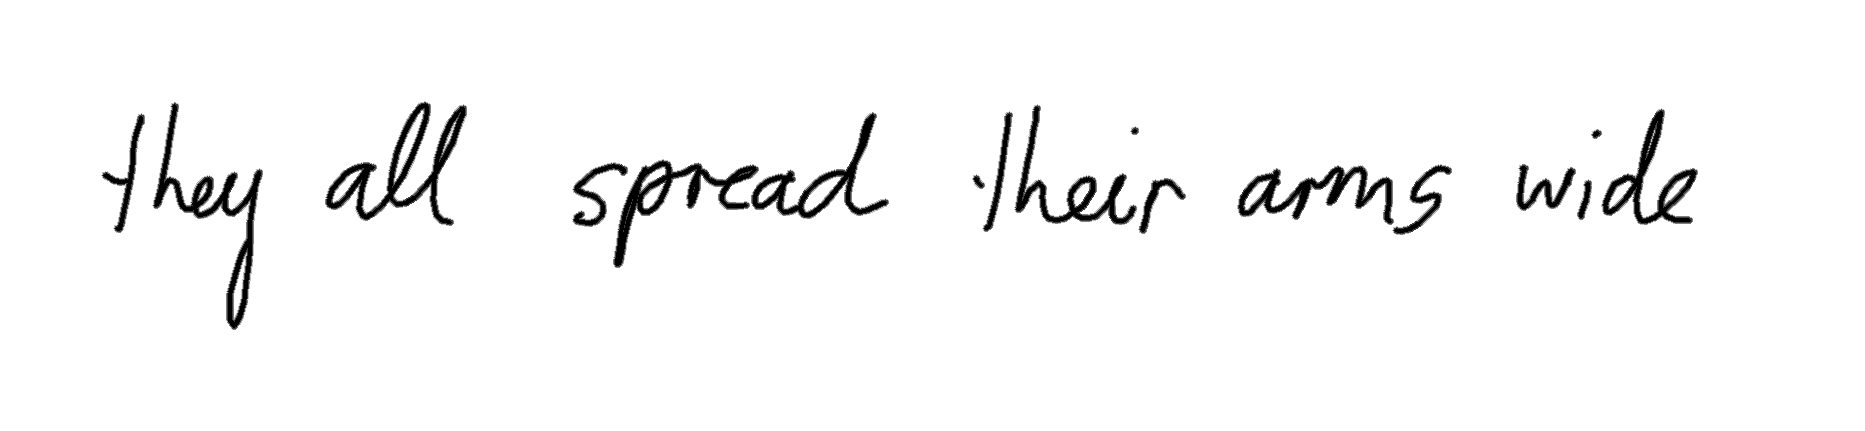 they all spread their arms wide